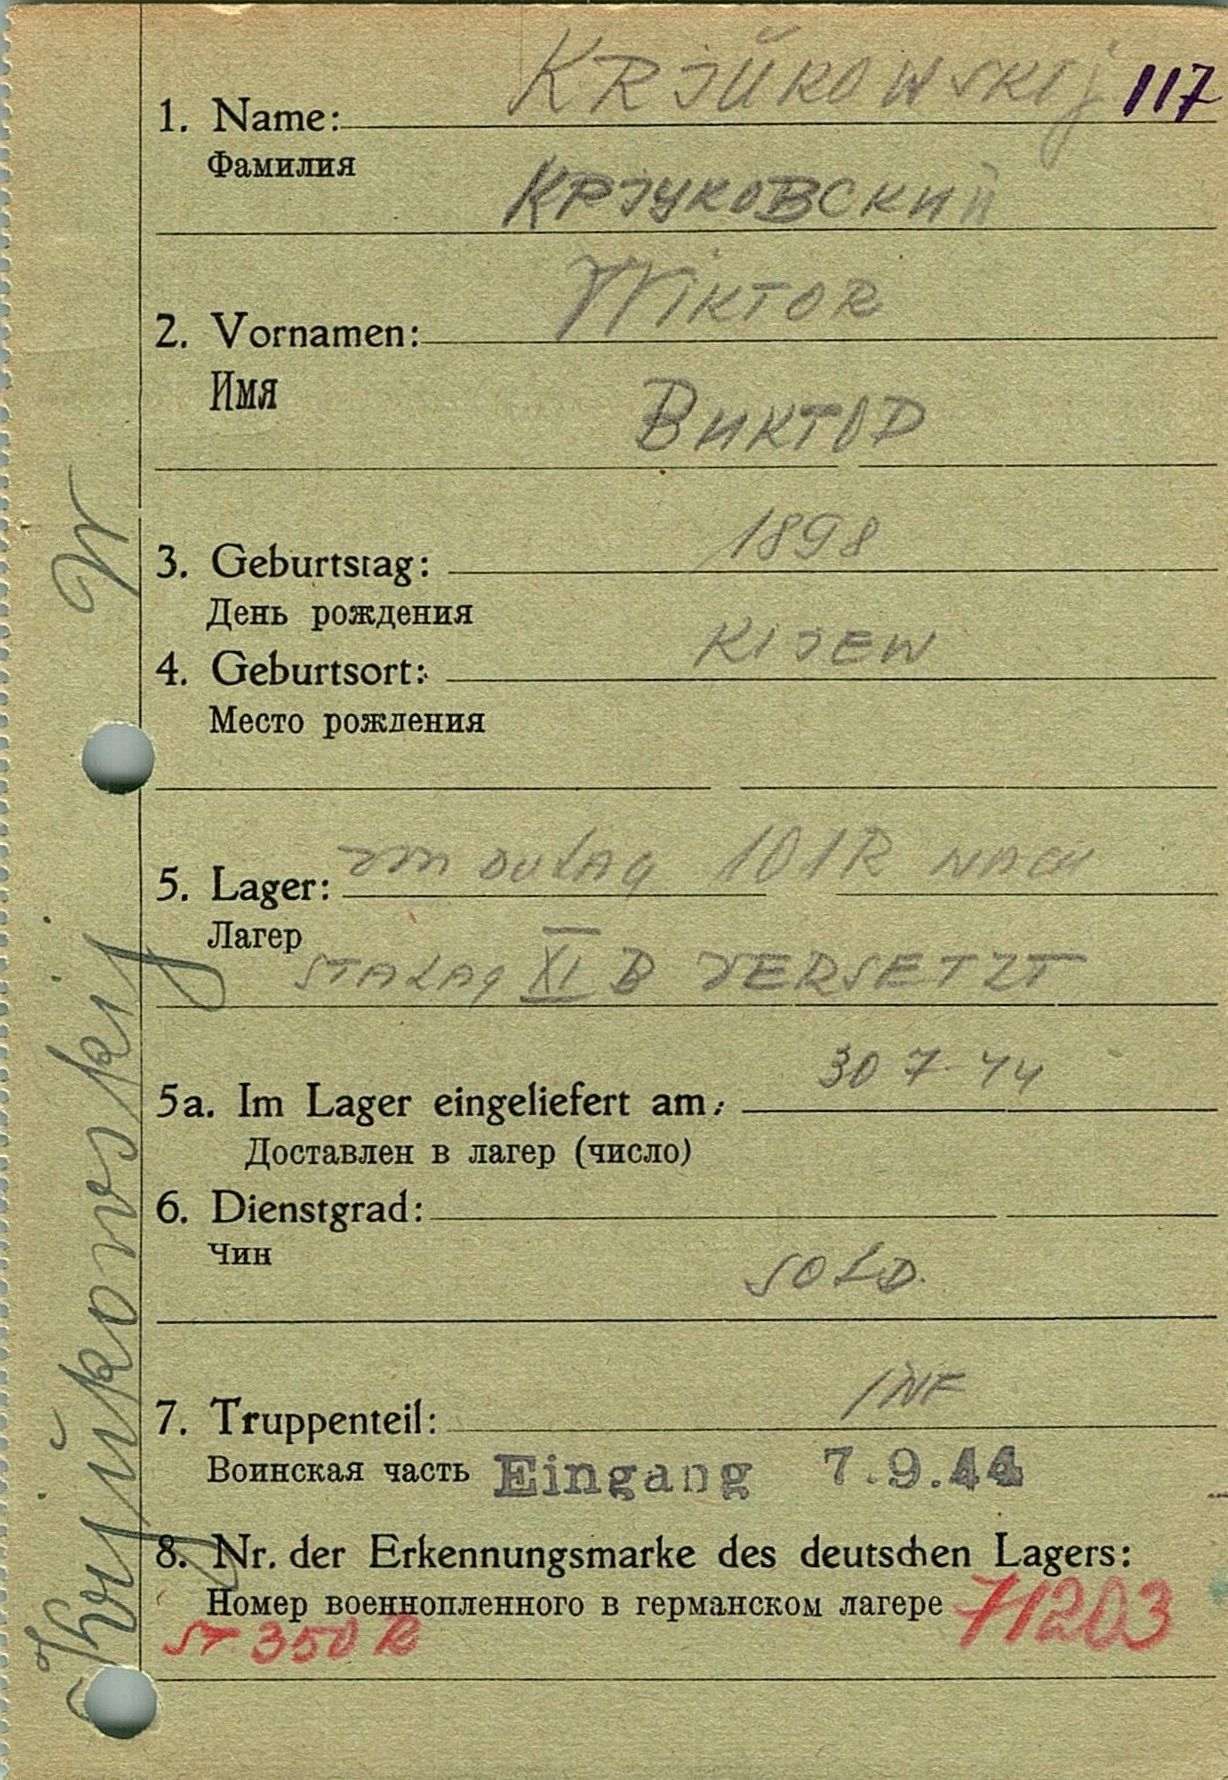 KRJŬKOWSKIJ 117
1. Name:
Фамилия
КРJУКОВСКИЙ
WIKTOR
2. Vornamen:
Имя
ВИКТОР
1898
3. Geburtstag:
День рождения
KIJEW
4. Geburtsort:
Место рождения
VON DULAG 101R NACH
5. Lager:
Лагер
STALAG XI B VERSETZT
30 7. 44
5a. Im Lager eingeliefert am:
Доставлен в лагер (число)
6. Dienstgrad:
Чин
SOLD.
INF
7. Truppenteil:
Воинская часть Eingang 7.9.44
8. Nr. der Erkennungsmarke des deutschen Lagers:
Номер военнопленного в германском лагере 71203
ST 350 R
Krjŭkowskij W